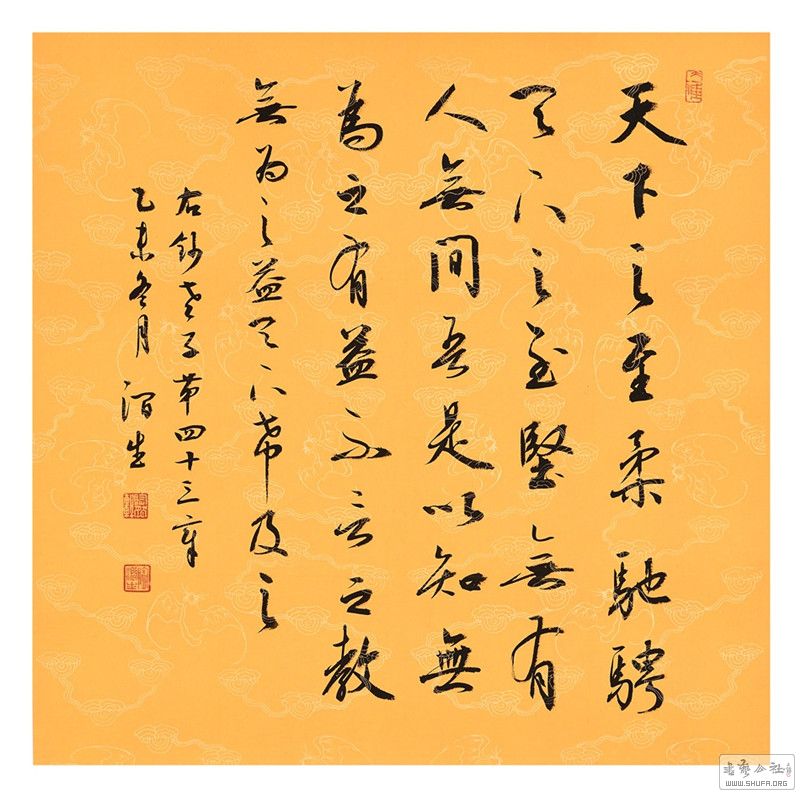 天下之至柔馳騁
天下之至堅無有
人無間吾是以知無
為之有益不言之教
無為之益天下希及之
右鈔老子第四十三章
乙未冬月 沼生
WWW.SHUFA.ORG